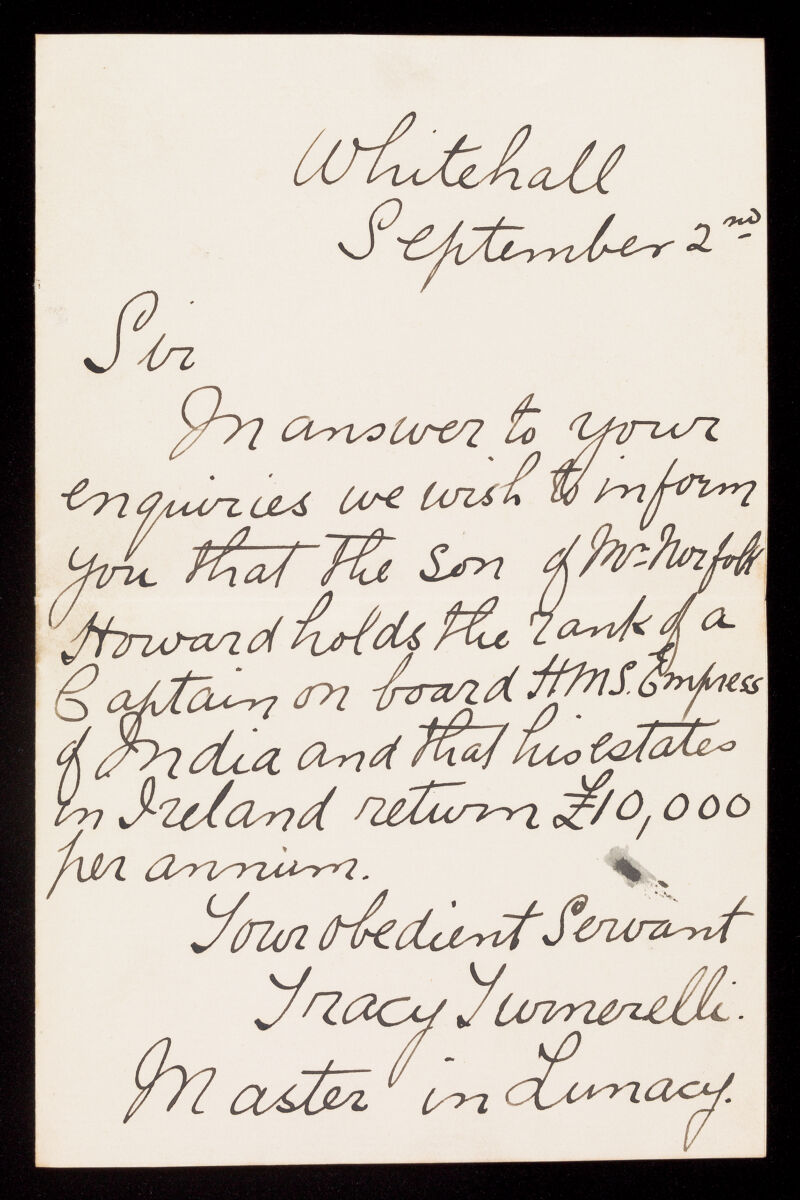 Whitehall
September 2nd
Sir
In answer to your
enquiries we wish to inform
you that the son of Mr. Norfolk
Howard holds the rank of a
Captain on board H.M.S. Empress
of India and that his estates
in Ireland return £10,000
per annum.
Your obedient Servant
Tracy Turnerelli.
Master in Lunacy.